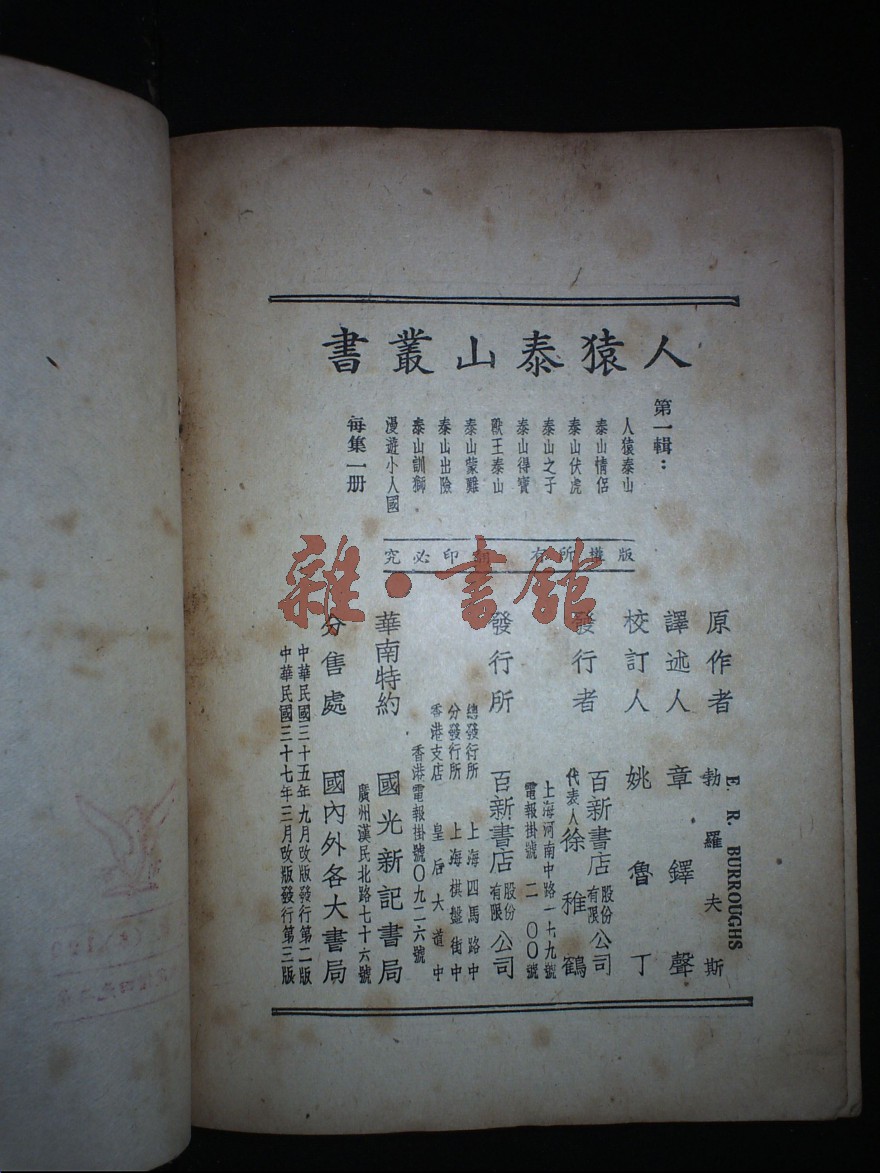 人猿泰山叢書
第一輯：
人猿泰山
泰山情侶
泰山伏虎
泰山之子
泰山得寶
獸王泰山
泰山蒙難
泰山出險
泰山訓獅
漫遊小人國
每集一册
版權所有 翻印必究
原作者 E. R. BURROUGHS 勃羅夫斯
譯述人 章鐸聲
校訂人 姚魯丁
發行者 百新書店股份有限公司
代表人徐稚鶴
上海河南中路一七九號
電報掛號二一〇〇號
發行所 百新書店股份有限公司
總發行所 上海四馬路中
分發行所 上海棋盤街中
香港支店 皇后大道中
香港電報掛號〇九二六號
華南特約 國光新記書局
廣州漢民北路七十六號
分售處 國內外各大書局
中華民國三十五年九月改版發行第二版
中華民國三十七年三月改版發行第三版
雜·書館